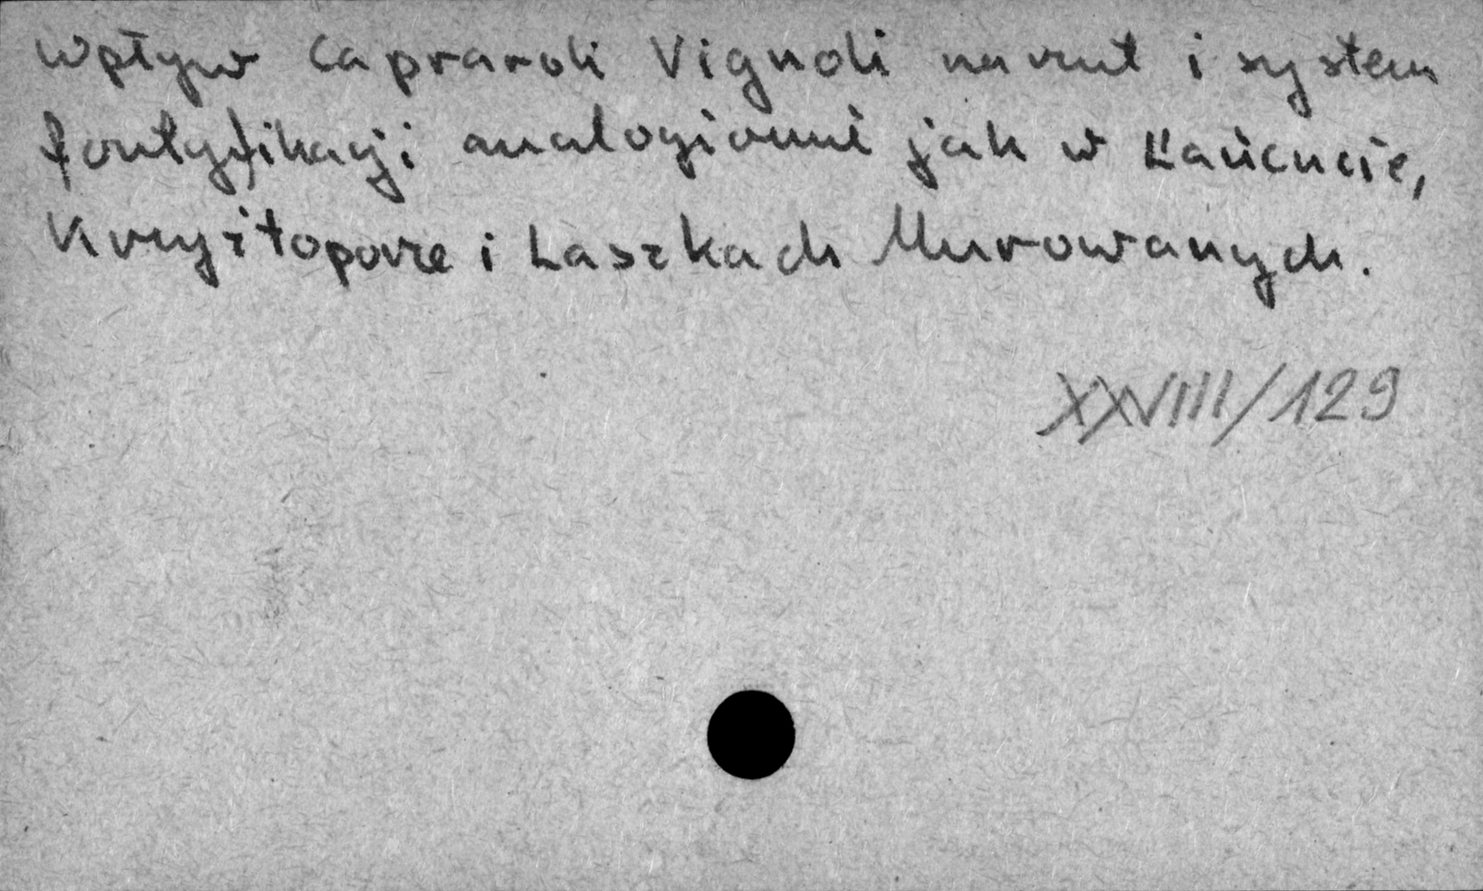 Wpływ Capraroli Vignoli na rzut i system
fortyfikacji analogicznie jak w Łańcucie,
Krzyżtoporze i Laszkach Murowanych.
XXVIII/129